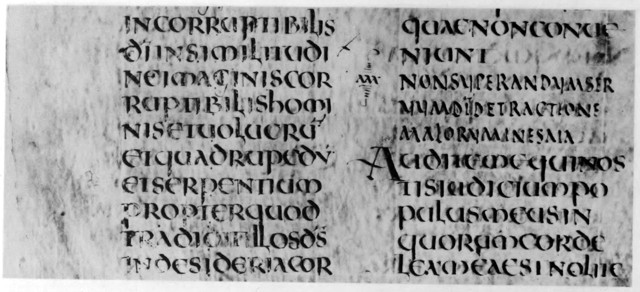 INCORRUPTIBILIS
D̄ĪINSIMILITUDI
NEIMAGINISCOR
RUPTIBILISHOMI
NISETUOLUCRŪ
ETQUADRUPEDŪ
ETSERPENTIUM
PROPTERQUOD
TRADIDITILLOSD̄S̄
INDESIDERIACOR
QUAENONCONUE
NIUNT
NONSUPERANDUMSER
MUMD̄ĪDETRACTIONE
MAIORUMINESAIA
AUDITEMEQUINOS
TISIUDICIUMPO
PULUSMEUSIN
QUORUMCORDE
LEXMEAESTNOLITE